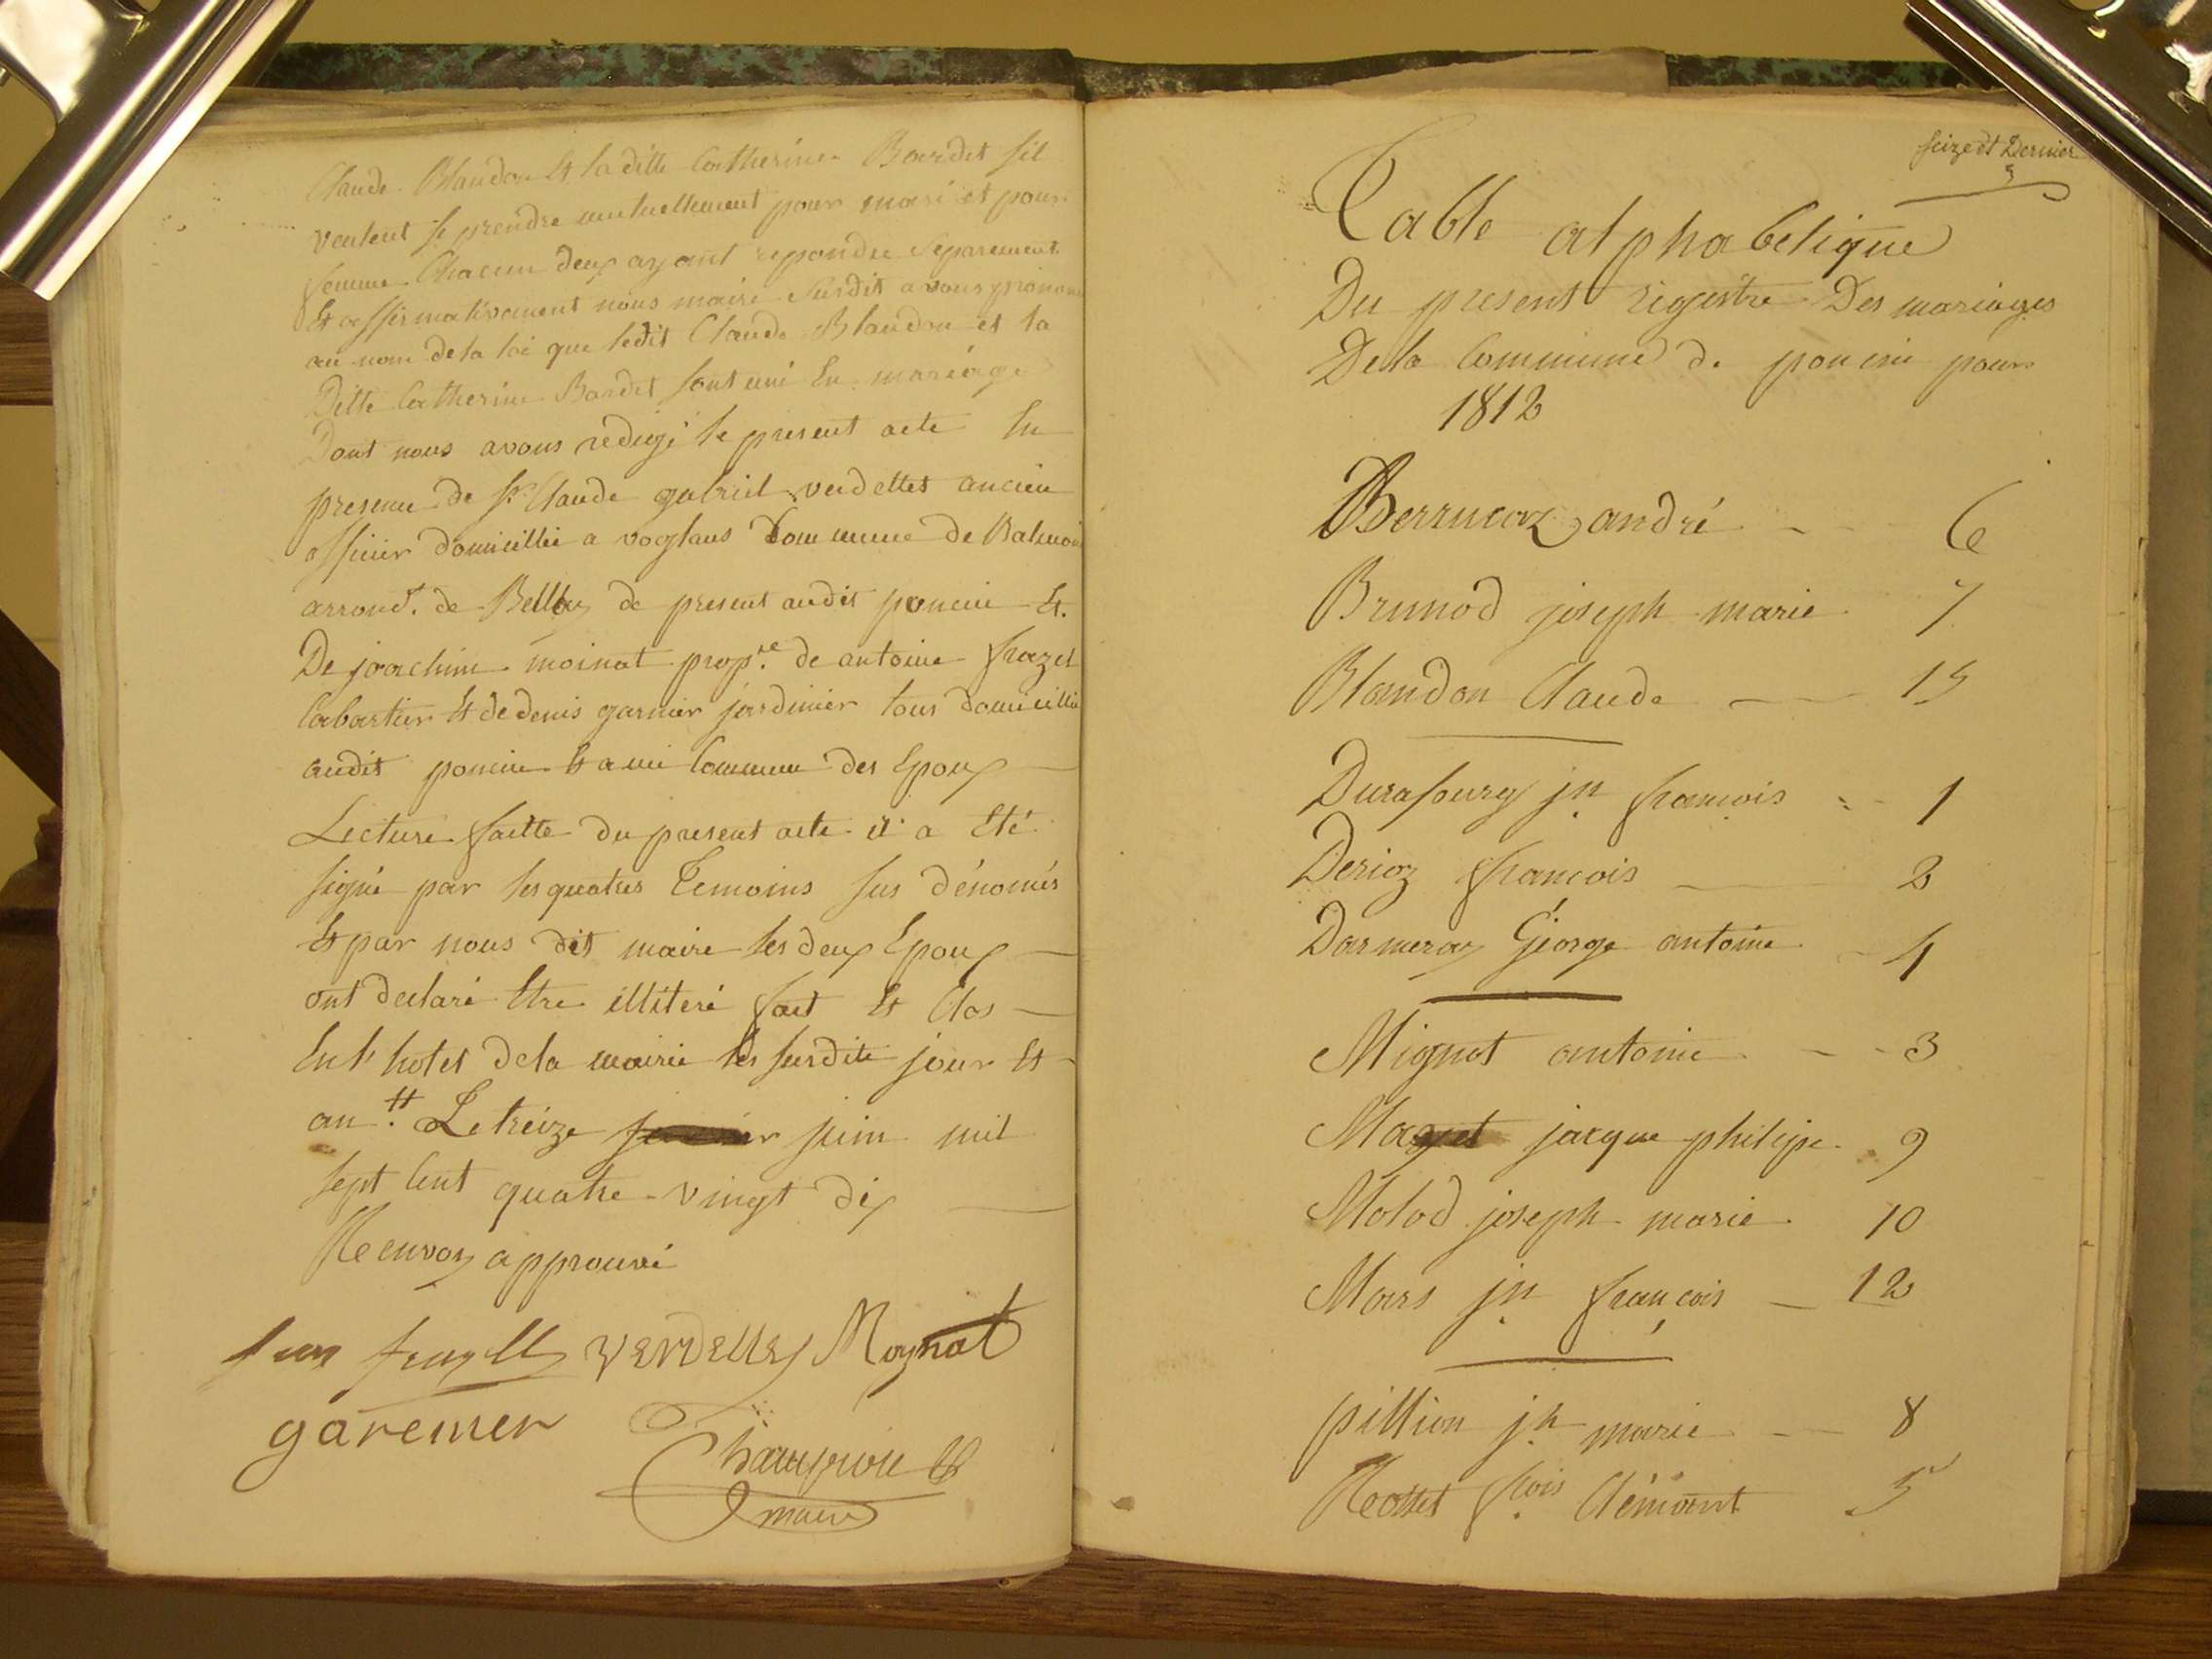 Claude Blandon Et la ditte Catherine Bardet sil
veulent se prendre mutuellement pour mari et pour
femme Chacun deux ayant repondu Separement
Et affirmativement nous maire Susdit avons pronon
au nom de la loi que ledit Claude Blandon et la
Ditte Catherine Bardet sont uni En mariage
Dont nous avons redigé le present acte En
presence de Sr Claude gabriel verdettet ancien
officier domicillié a voglans Commune de
arrondt. de Belley de present audit poncin Et
De joachim moinat propre. de antoine frazet
Cabartier Et de denis garnier jardinier tous domicillié
audit poncin Et ami Commun des Epoux
Lecture faitte du present acte il a Eté
signé par les quatres Temoins sus dénomés
Et par nous dit maire les deux Epoux
ont declaré Etre illiteré fait Et Clos
En l'hotel de la mairie les susdite jour Et
an tt. Le treize juin mil
sept Cent quatre-vingt dix
Renvoy approuvé
verdettet Moynat
garenier
Champion
maire
seize et Dernier
Table alphabetique
Du present registre Des mariages
De la Commune de poncin pour
1812
Berrucaz andré 6
Brunod joseph marie 7
Blandon Claude 15
Durafourg jn françois 1
Derioz francois 2
Darmeray George antoine 4
Mignot antoine 3
Maget jacque philipe 9
Molod joseph marie 10
Mars jn françois 12
pillion jh marie 8
Rosset fcois Clémoint 5